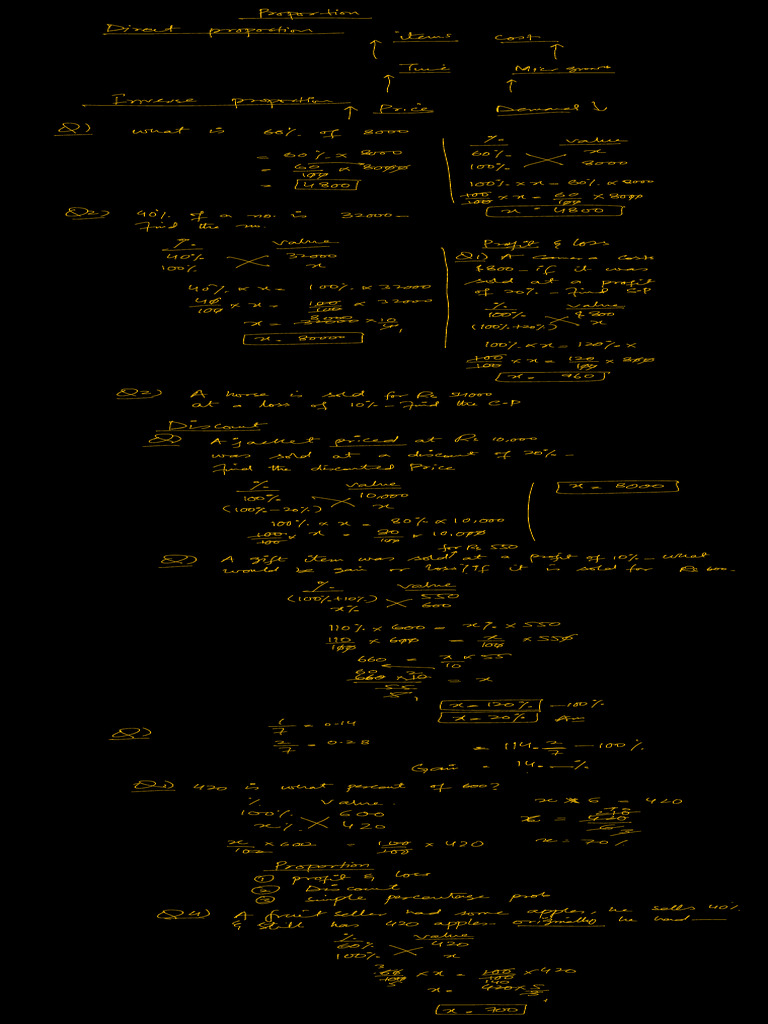 Proportion
Direct proportion ↑ items cost ↑
↑ Time Micro ↑
Inverse proportion ↑ Price Demand ↓
Q) What is 60% of 8000
= 60% × 8000
= 60/100 × 8000
= 4800
% value
60% x
100% 8000
100% × x = 60% × 8000
100/100 × x = 60/100 × 8000
x = 4800
Q2) 40% of a no. is 32000 –
find the no.
% value
40% 32000
100% x
40% × x = 100% × 32000
40/100 × x = 100/100 × 32000
x = 32000 × 10/4
x = 80000
Profit & loss
Q1) A camera costs
$800 – if it was
sold at a profit
of 20% – find S-P
% value
100% $800
(100%+20%) x
100% × x = 120% ×
100/100 × x = 120/100 × 800
x = 960
Q2) A horse is sold for Rs
at a loss of 10% – find the C-P
Discount
Q) A jacket priced at Rs 10,000
was sold at a discount of 20% –
find the discounted Price
% value
100% 10,000
(100%–20%) x
100% × x = 80% × 10,000
100/100 × x = 80/100 × 10,000
x = 8000
for Rs 550
Q) A gift item was sold at a profit of 10% – what
would be gain or loss% if it is sold for Rs 600.
% value
(100%+10%) 550
x% 600
110% × 600 = x% × 550
110/100 × 600 = x/100 × 550
660 = x/10 × 55
660 × 10/55 = x
x = 120% – 100%
x = 20% Ans
Q)
1/7 = 0.14
2/7 = 0.28
= 114.2/7 – 100%
Gain = 14. – %
Q3) 420 is what percent of 600?
% Value
100% 600
x% 420
x/100 × 600 = 100/100 × 420
x × 6 = 420
x = 420/6
x = 70%
Proportion
① profit & loss
② Discount
③ simple percentage prob
Q4) A fruit seller had some apples, he sells 40%
& still has 420 apples. originally he had
% value
60% 420
100% x
60/100 × x = 100/100 × 420
x = 420 × 5/3
x = 700